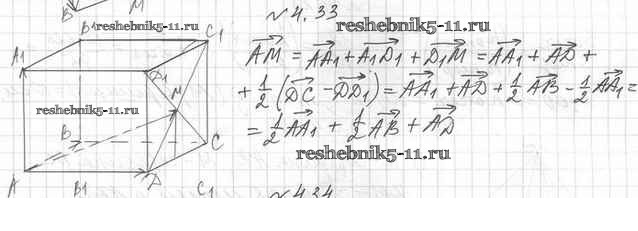 B M
№4.33
reshebnik5-11.ru
B1 reshebnik5-11.ru C1
A1 D1
M
reshebnik5-11.ru
B C
A B1 D C1
AM = AA1 + A1D1 + D1M = AA1 + AD +
+ 1/2 (DC - DD1) = AA1 + AD + 1/2 AB - 1/2 AA1 =
= 1/2 AA1 + 1/2 AB + AD
reshebnik5-11.ru
№4.34